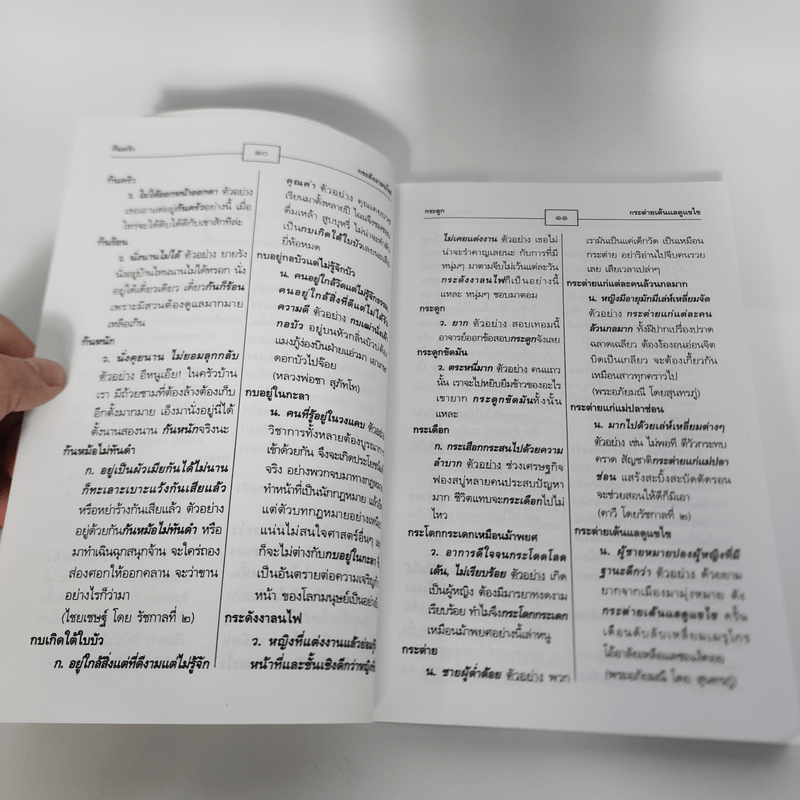 ก้นครัว
๑๐
ก้นครัว
ว. ไม่ได้ออกหน้าออกตา ตัวอย่าง
เธอเอาแต่อยู่ก้นครัวอย่างนี้ เมื่อ
ไหร่จะได้ดิบได้ดีกับเขาสักทีล่ะ
ก้นร้อน
ว. นั่งนานไม่ได้ ตัวอย่าง ยายรัง
นั่งอยู่บ้านไหนนานไม่ได้หรอก นั่ง
อยู่ได้เดี๋ยวเดียว เดี๋ยวก้นก็ร้อน
เพราะมีสวนต้องดูแลมากมาย
เหลือเกิน
ก้นหนัก
ว. นั่งคุยนาน ไม่ยอมลุกกลับ
ตัวอย่าง อีหนูเอ๊ย! ในครัวบ้าน
เรา มีถ้วยชามที่ต้องล้างต้องเก็บ
อีกตั้งมากมาย เอ็งมานั่งอยู่นี่ได้
ตั้งนานสองนาน ก้นหนักจริงนะ
ก้นหม้อไม่ทันดำ
ก. อยู่เป็นผัวเมียกันได้ไม่นาน
ก็ทะเลาะเบาะแว้งกันเสียแล้ว
หรือหย่าร้างกันเสียแล้ว ตัวอย่าง
อยู่ด้วยกันก้นหม้อไม่ทันดำ หรือ
มาทำเฉินฉุกสนุกจ้าน จะใคร่ถอง
ส่องศอกให้ออกคลาน จะว่าขาน
อย่างไรก็ว่ามา
(ไชยเชษฐ์ โดย รัชกาลที่ ๒)
กบเกิดใต้ใบบัว
ก. อยู่ใกล้สิ่งแต่ที่ดีงามแต่ไม่รู้จัก
คุณค่า ตัวอย่าง
เรียนมาตั้งหลายปี
ดื่มเหล้า สูบบุหรี่ ไม่น่าจะทำตัว
เป็นกบเกิดใต้ใบบัวเลย
ยี่ห้อหมด
กบอยู่กอบัวแต่ไม่รู้จักบัว
น. คนอยู่ใกล้วัดแต่ไม่รู้จักธรรม
คนอยู่ใกล้สิ่งที่ดีแต่ไม่ได้
ความดี ตัวอย่าง กบเฒ่านั่ง
กอบัว อยู่บนหัวกลิ่นบัวบ่ต้อง
แมงภู่ง่องบินฝ่ายแอ่วมา เอาเกษ
ดอกบัวไปจ้อย
(หลวงพ่อชา สุภัทโท)
กบอยู่ในกะลา
น. คนที่รู้อยู่ในวงแคบ ตัวอย่าง
วิชาการทั้งหลายต้องบูรณาการ
เข้าด้วยกัน จึงจะเกิดประโยชน์
จริง อย่างพวกจบมาทางกฎหมาย
ทำหน้าที่เป็นนักกฎหมาย แล้ว
แต่ตัวบทกฎหมายอย่างเหนียว
แน่นไม่สนใจศาสตร์อื่นๆ เลย
ก็จะไม่ต่างกับกบอยู่ในกะลา
เป็นอันตรายต่อความเจริญก้าว
หน้า ของโลกมนุษย์เป็นอย่างยิ่ง
กระดังงาลนไฟ
ว. หญิงที่แต่งงานแล้วย่อมรู้
หน้าที่และชั้นเชิงดีกว่าหญิงที่
กระดูก
๑๑
กระต่ายเต้นแลดูแขไข
ไม่เคยแต่งงาน ตัวอย่าง เธอไม่
น่าจะรำคาญเลยนะ กับการที่มี
หนุ่มๆ มาตามจีบไม่เว้นแต่ละวัน
กระดังงาลนไฟก็เป็นอย่างนี้
แหละ หนุ่มๆ ชอบมาตอม
กระดูก
ว. ยาก ตัวอย่าง สอบเทอมนี้
อาจารย์ออกข้อสอบกระดูกจังเลย
กระดูกขัดมัน
ว. ตระหนี่มาก ตัวอย่าง คนแถว
นั้น เราจะไปหยิบยืมข้าวของอะไร
เขายาก กระดูกขัดมันทั้งนั้น
แหละ
กระเดือก
ก. กระเสือกกระสนไปด้วยความ
ลำบาก ตัวอย่าง ช่วงเศรษฐกิจ
ฟองสบู่หลายคนประสบปัญหา
มาก ชีวิตแทบจะกระเดือกไปไม่
ไหว
กระโดกกระเดกเหมือนม้าพยศ
ว. อาการดีใจจนกระโดดโลด
เต้น, ไม่เรียบร้อย ตัวอย่าง เกิด
เป็นผู้หญิง ต้องมีมารยาทงดงาม
เรียบร้อย ทำไมจึงกระโดกกระเดก
เหมือนม้าพยศอย่างนี้เล่าหนู
กระต่าย
น. ชายผู้ต่ำต้อย ตัวอย่าง พวก
เรามันเป็นแค่เด็กวัด เป็นเหมือน
กระต่าย อย่าริอ่านไปจีบคนรวย
เลย เสียเวลาเปล่าๆ
กระต่ายแก่แต่ละคนล้วนกลมาก
น. หญิงมีอายุมักมีเล่ห์เหลี่ยมจัด
ตัวอย่าง กระต่ายแก่แต่ละคน
ล้วนกลมาก ทั้งฝีปากเปรื่องปราด
ฉลาดเฉลียว ต้องง้องอนอ่อนจิต
บิดเป็นเกลียว จะต้องเกี้ยวกัน
เหมือนสาวทุกคราวไป
(พระอภัยมณี โดยสุนทรภู่)
กระต่ายแก่แม่ปลาช่อน
น. มากไปด้วยเล่ห์เหลี่ยมต่างๆ
ตัวอย่าง เช่น ไม่พอที ตีวัวกระทบ
คราด สัญชาติกระต่ายแก่แม่ปลา
ช่อน แสร้งสะบิ้งสะบัดตัดรอน
จะช่วยสอนให้ดีก็มิเอา
(คาวี โดยรัชกาลที่ ๒)
กระต่ายเต้นแลดูแขไข
น. ผู้ชายหมายปองผู้หญิงที่มี
ฐานะดีกว่า ตัวอย่าง ด้วยยาม
ยากจากเมืองมามุ่งหมาย ดัง
กระต่ายเต้นแลดูแขไข ครั้น
เดือนดับลับเหลี่ยมเมรุไกร
(พระอภัยมณี โดย สุนทรภู่)